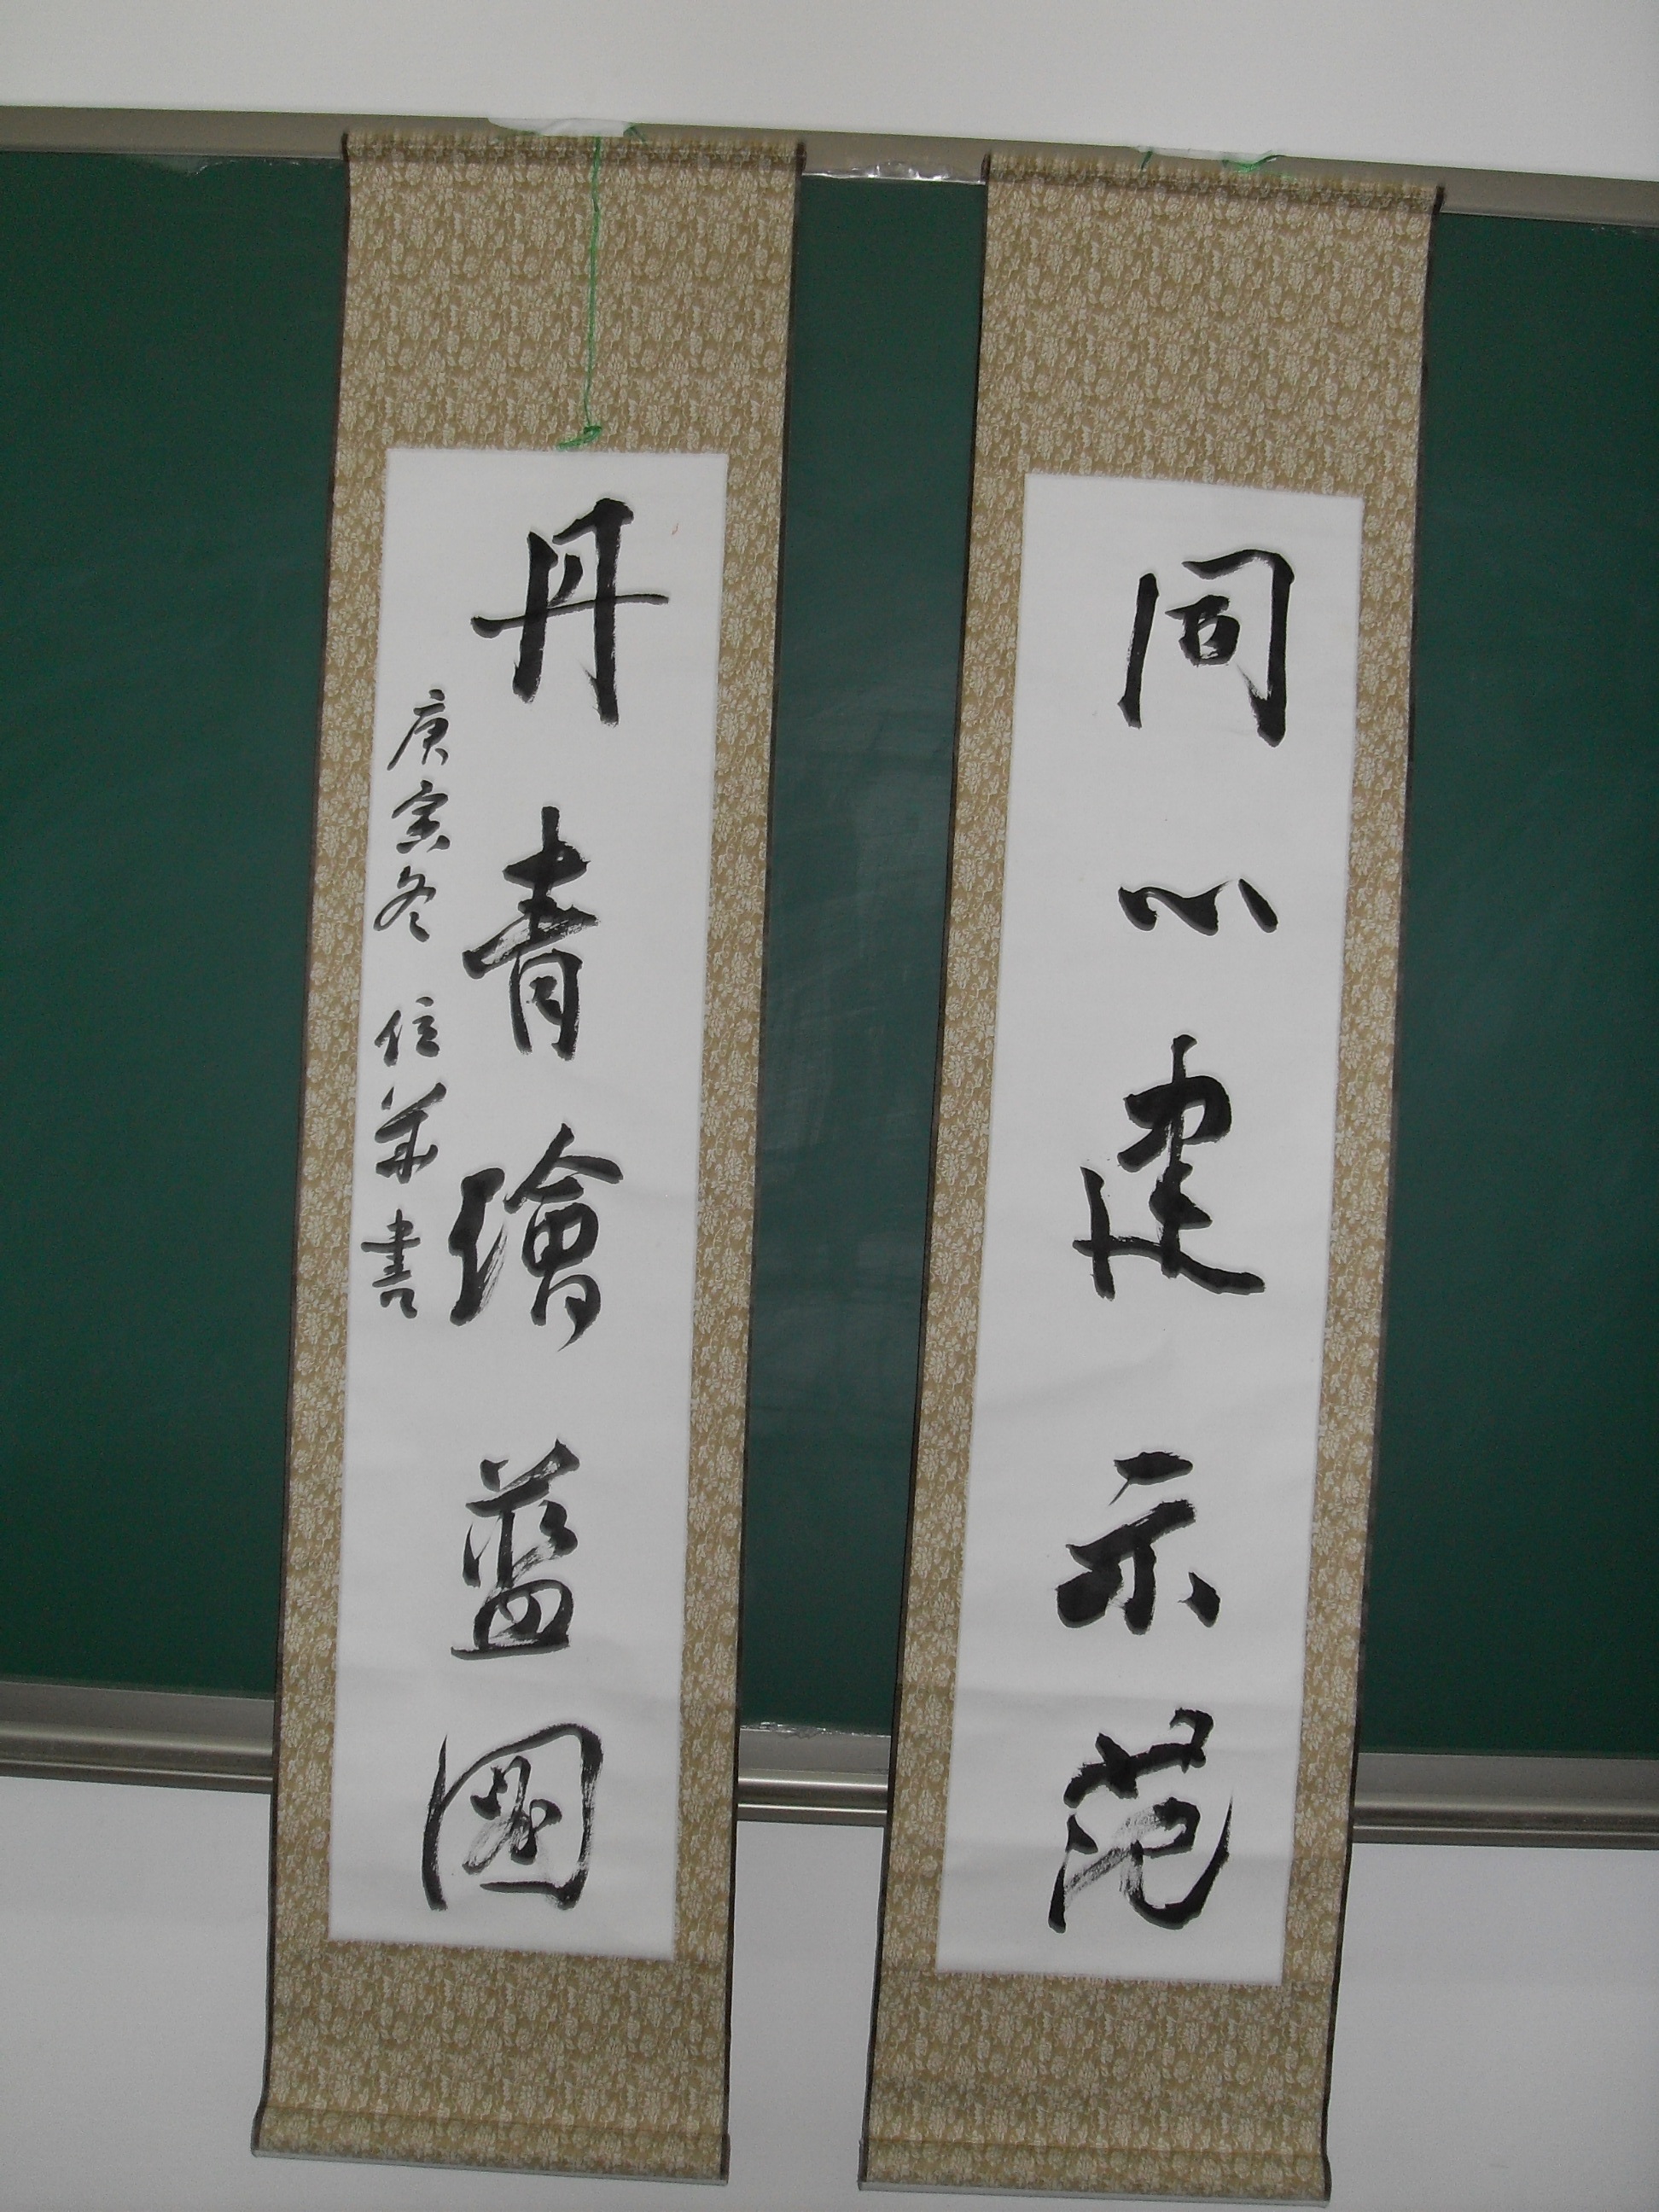 同心建示范
丹青繪藍圖
庚寅冬 信華書